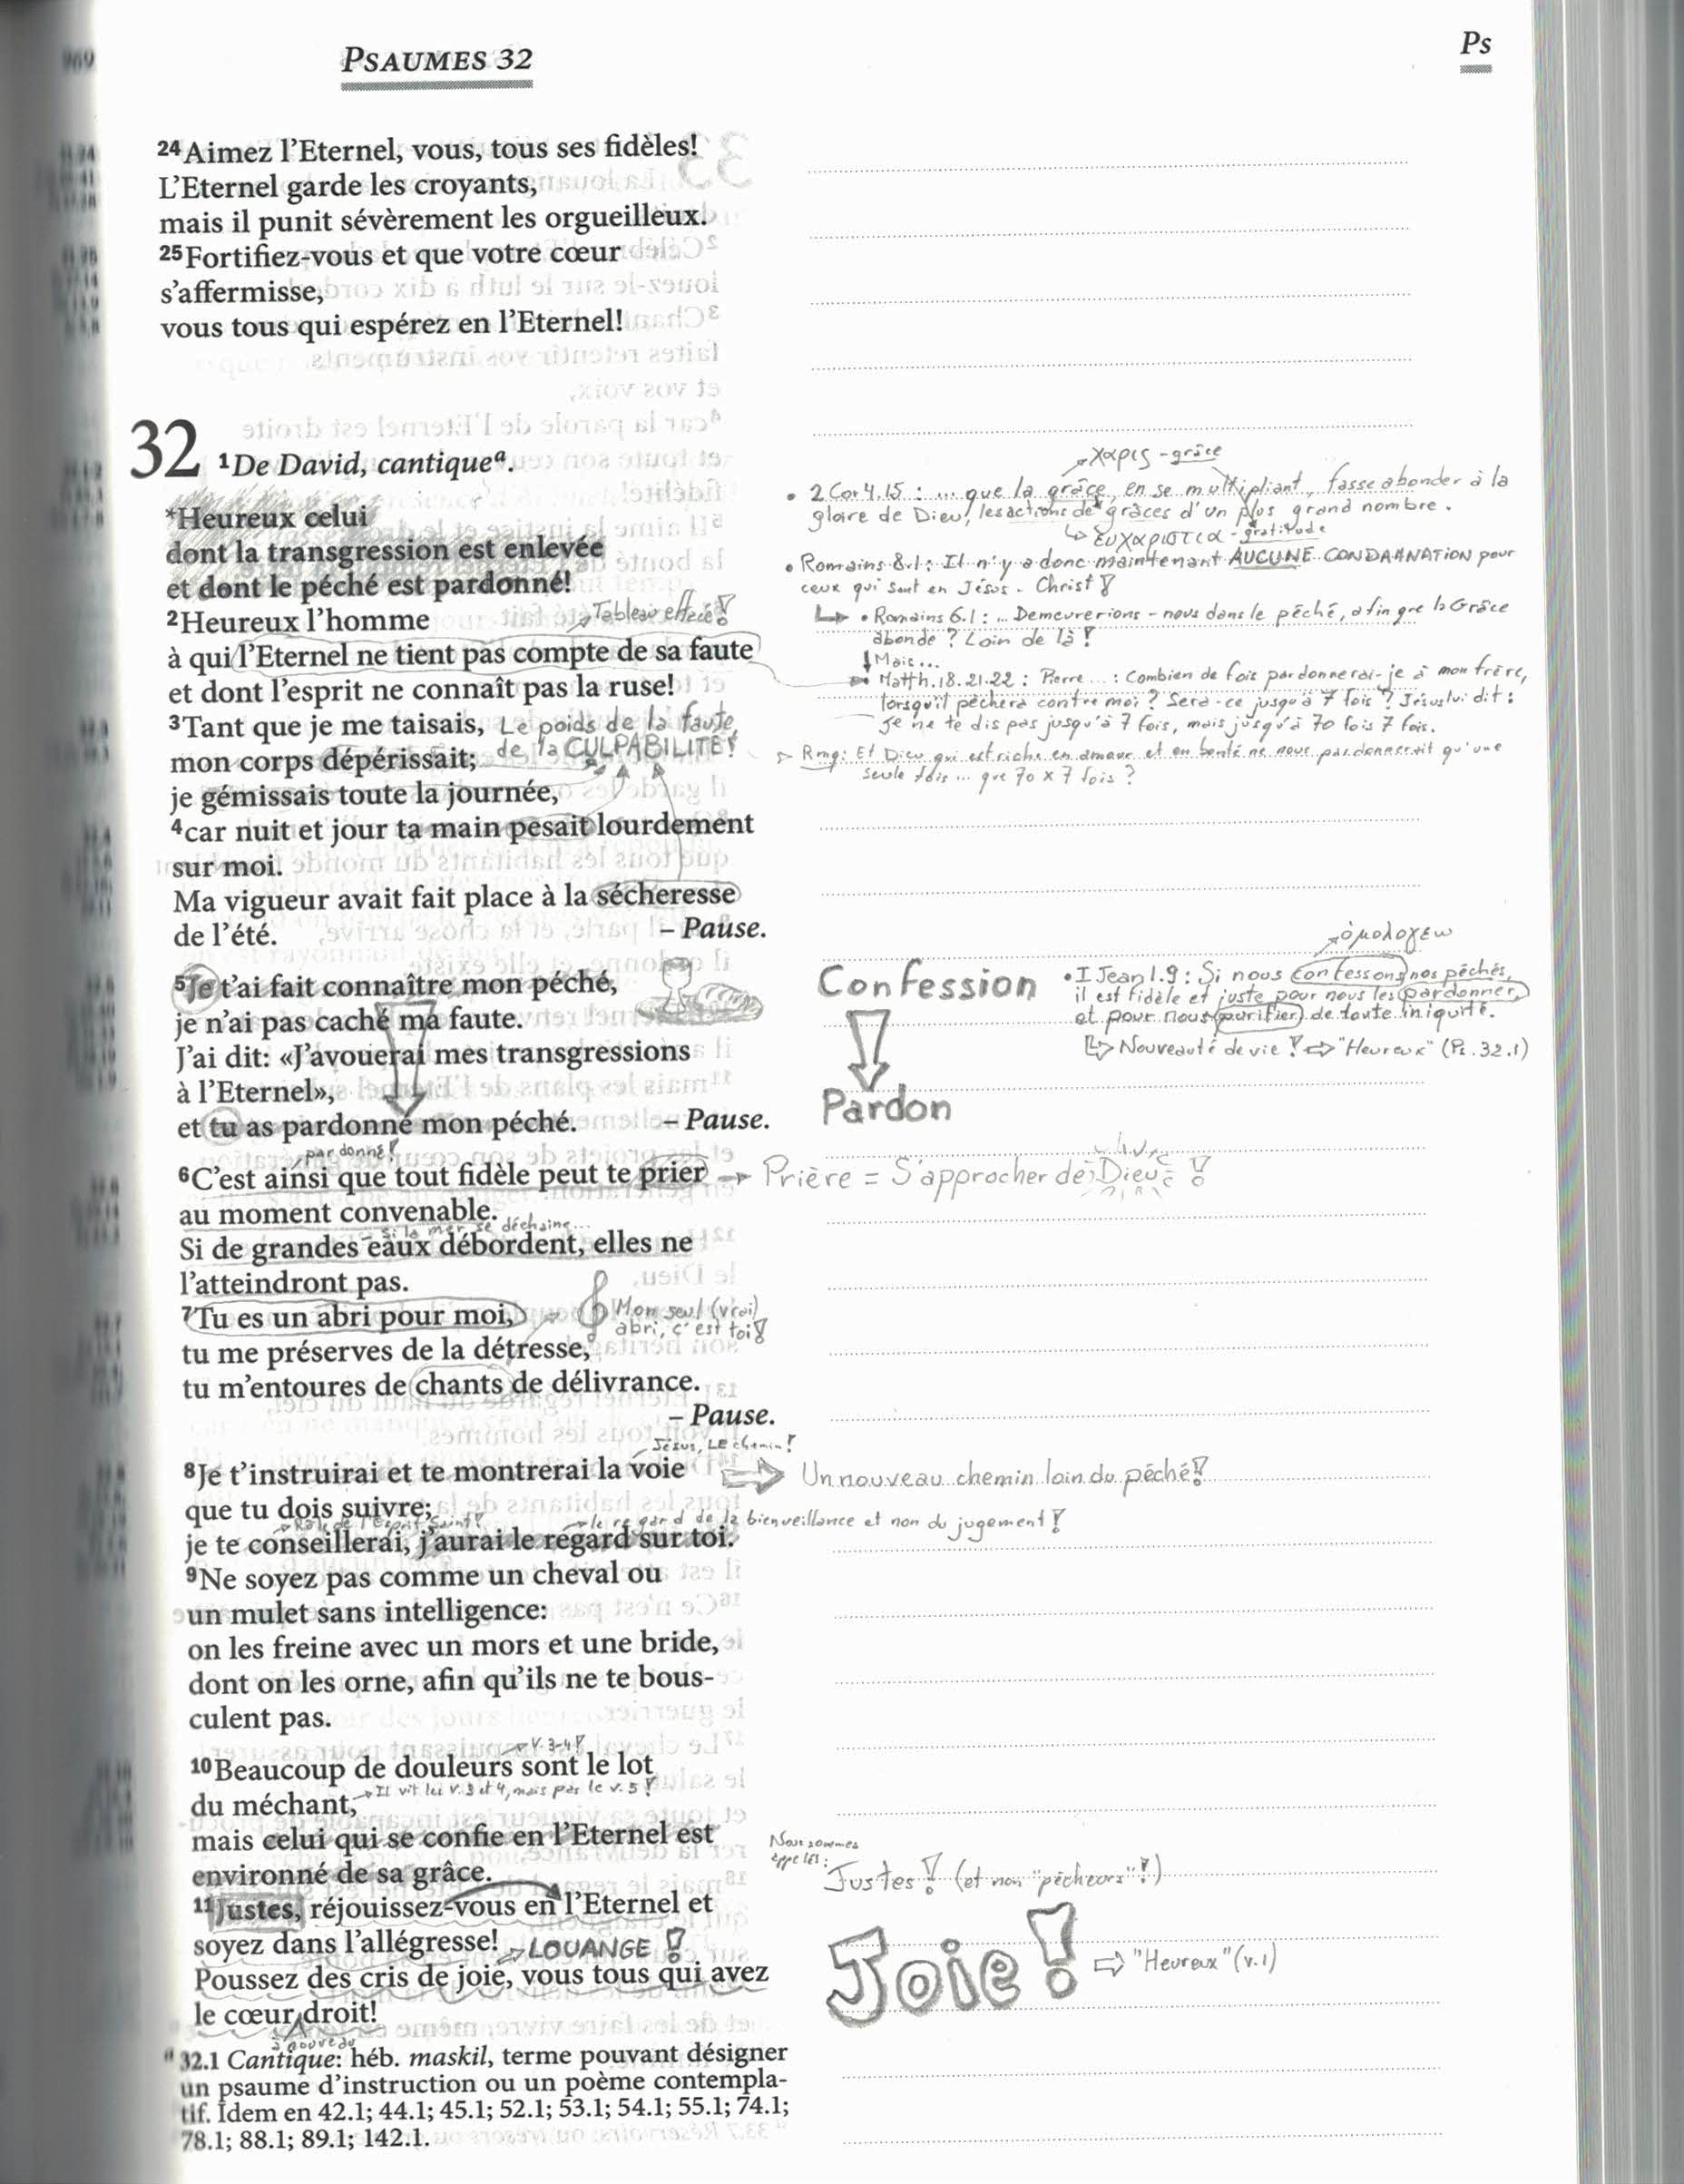 PSAUMES 32
Ps
24Aimez l'Eternel, vous, tous ses fidèles!
L'Eternel garde les croyants,
mais il punit sévèrement les orgueilleux.
25Fortifiez-vous et que votre cœur
s'affermisse,
vous tous qui espérez en l'Eternel!
32 1De David, cantiqueª.
*Heureux celui
dont la transgression est enlevée
et dont le péché est pardonné!
2Heureux l'homme
Tableau effacé!
à qui l'Eternel ne tient pas compte de sa faute
et dont l'esprit ne connaît pas la ruse!
3Tant que je me taisais,
Le poids de la faute,
de la CULPABILITÉ!
mon corps dépérissait;
je gémissais toute la journée,
4car nuit et jour ta main pesait lourdement
sur moi.
Ma vigueur avait fait place à la sécheresse
de l'été. – Pause.
χαρις - grâce
• 2 Cor 4.15 : ... que la grâce, en se multipliant, fasse abonder à la
gloire de Dieu, les actions de grâces d'un plus grand nombre.
↳ ευχαριστια - gratitude
• Romains 8.1 : Il n'y a donc maintenant AUCUNE CONDAMNATION pour
ceux qui sont en Jésus-Christ!
↳ • Romains 6.1 : ... Demeurerions-nous dans le péché, afin que la Grâce
abonde ? Loin de là !
↓ Mais...
Matth. 18.21.22 : Pierre ... : Combien de fois pardonnerai-je à mon frère,
lorsqu'il péchera contre moi ? Sera-ce jusqu'à 7 fois ? Jésus lui dit :
Je ne te dis pas jusqu'à 7 fois, mais jusqu'à 70 fois 7 fois.
Rmq : Et Dieu qui est riche en amour et en bonté ne nous pardonnerait qu'une
seule fois ... que 70 x 7 fois ?
5Je t'ai fait connaître mon péché,
je n'ai pas caché ma faute.
J'ai dit: «J'avouerai mes transgressions
à l'Eternel»,
et tu as pardonné mon péché. – Pause.
Confession
Pardon
ὁμολογεω
• I Jean 1.9 : Si nous confessons nos péchés,
il est fidèle et juste pour nous les pardonner,
et pour nous purifier de toute iniquité.
Nouveauté de vie ! ⇨ "Heureux" (Ps. 32.1)
pardonné!
6C'est ainsi que tout fidèle peut te prier → Prière = S'approcher de Dieu !
au moment convenable.
si la mer se déchaine...
Si de grandes eaux débordent, elles ne
l'atteindront pas.
7Tu es un abri pour moi,
Mon seul (vrai)
abri, c'est toi!
tu me préserves de la détresse,
tu m'entoures de chants de délivrance.
– Pause.
Jésus, LE chemin!
8Je t'instruirai et te montrerai la voie ⇨ Un nouveau chemin loin du péché!
que tu dois suivre;
Rôle de l'Esprit-Saint!
le regard de la bienveillance et non du jugement!
je te conseillerai, j'aurai le regard sur toi.
9Ne soyez pas comme un cheval ou
un mulet sans intelligence:
on les freine avec un mors et une bride,
dont on les orne, afin qu'ils ne te bous-
culent pas.
v. 3-4!
10Beaucoup de douleurs sont le lot
du méchant,
Il vit les v. 3 et 4, mais pas le v. 5!
mais celui qui se confie en l'Eternel est
environné de sa grâce.
Nous sommes
appelés :
Justes! (et non "pécheurs"!)
11Justes, réjouissez-vous en l'Eternel et
soyez dans l'allégresse! LOUANGE !
Poussez des cris de joie, vous tous qui avez
le cœur droit!
à nouveau
Joie! ⇨ "Heureux" (v.1)
a 32.1 Cantique: héb. maskil, terme pouvant désigner
un psaume d'instruction ou un poème contempla-
tif. Idem en 42.1; 44.1; 45.1; 52.1; 53.1; 54.1; 55.1; 74.1;
78.1; 88.1; 89.1; 142.1.